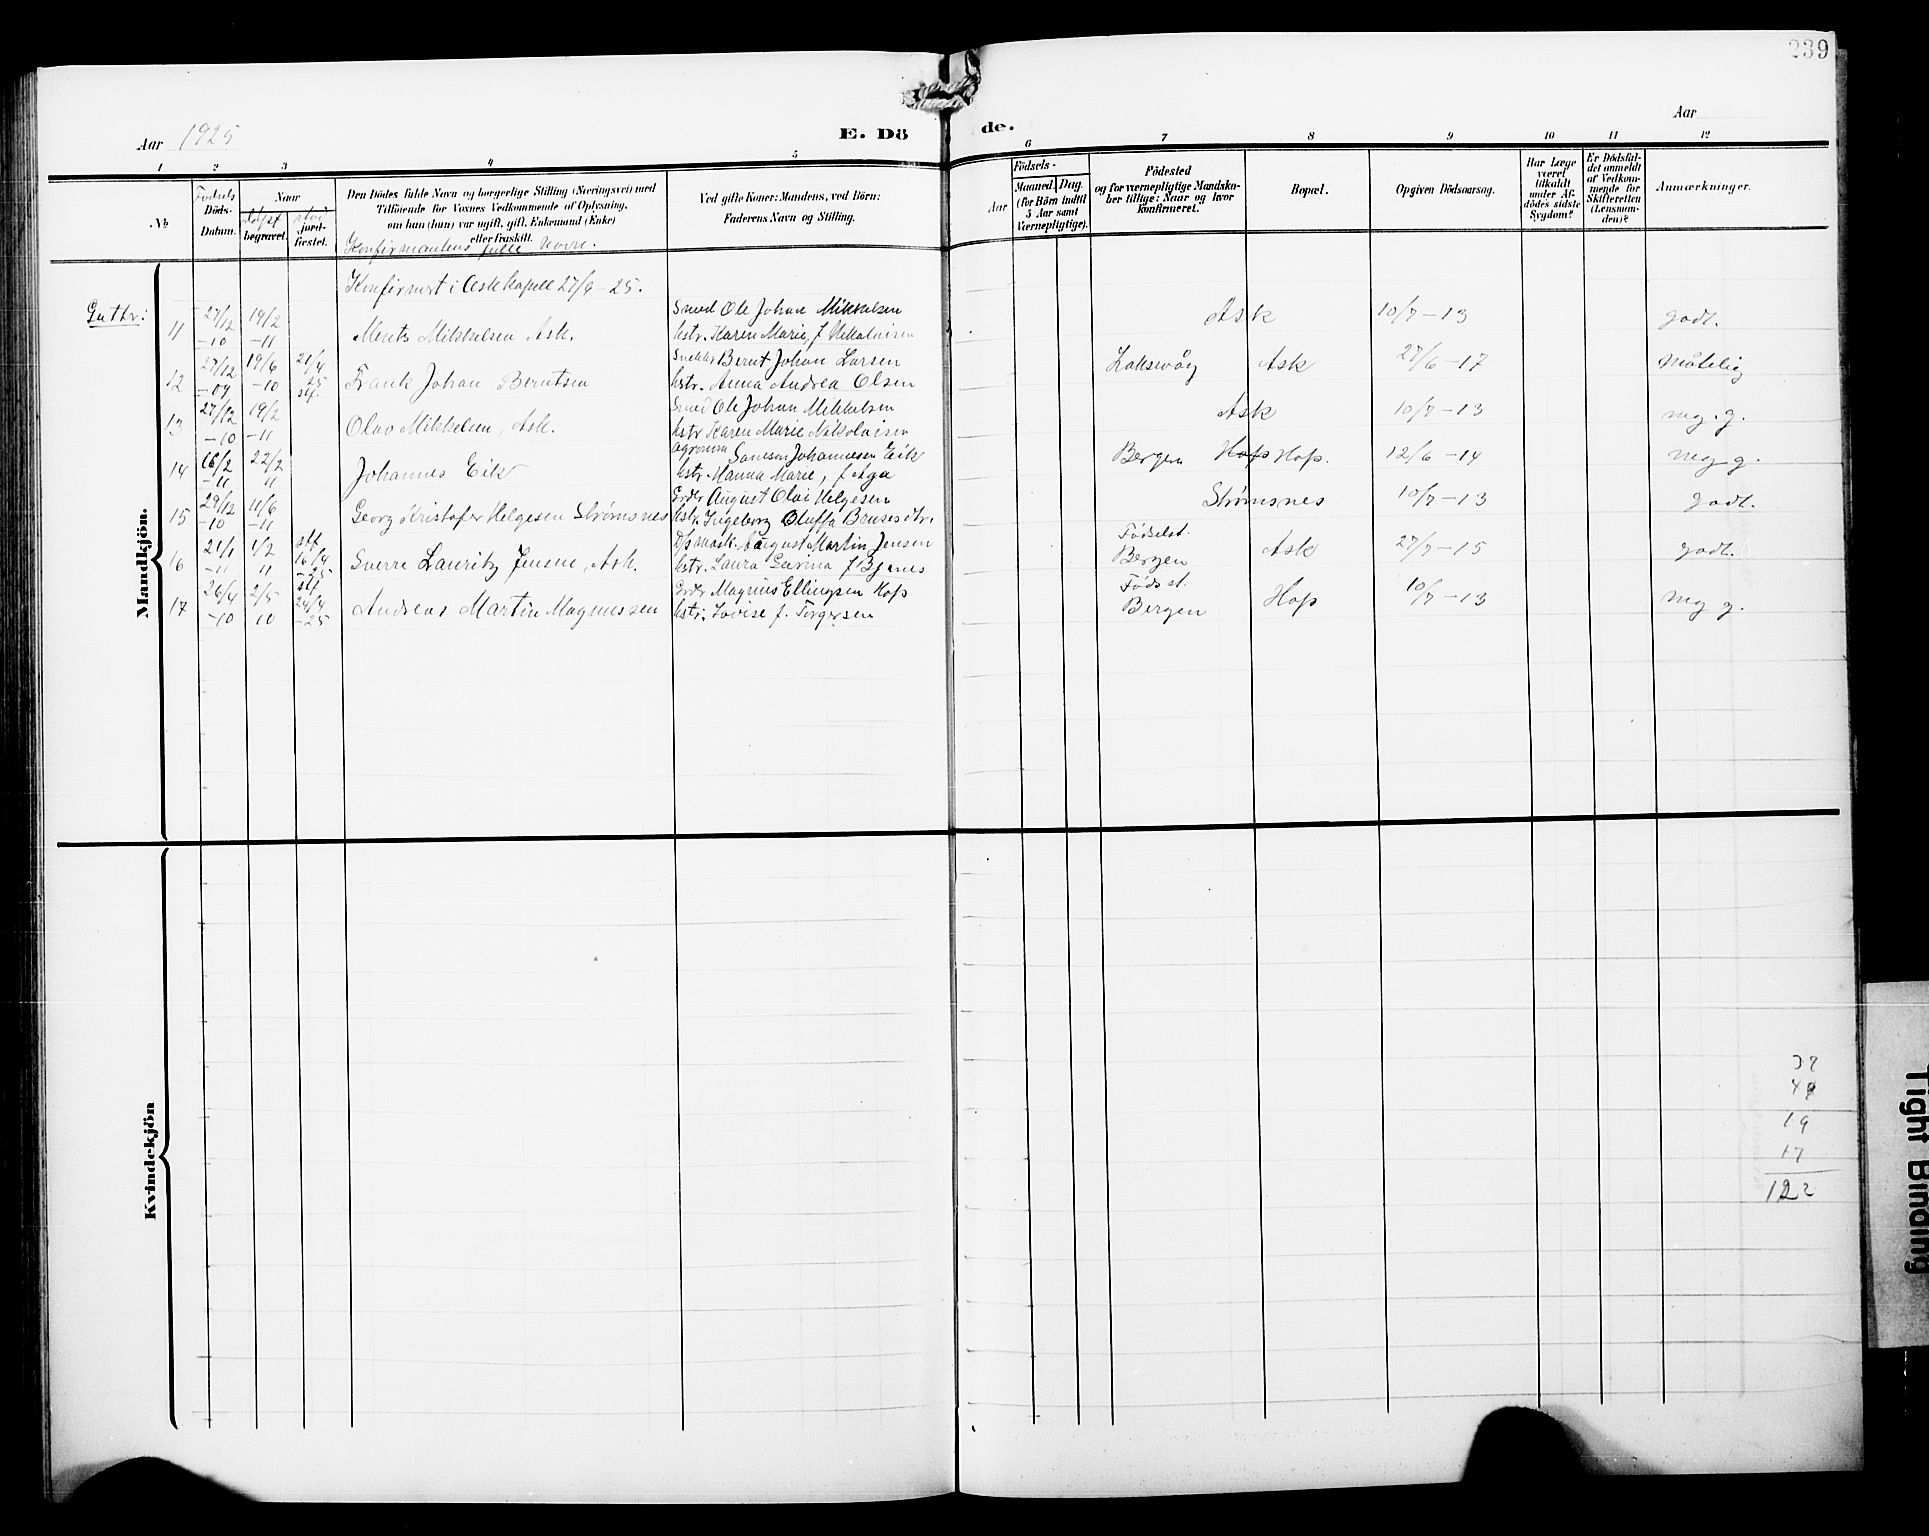 239
Aar 1925
E. Dö de.
Aar
1 2 3 4 5 6 7 8 9 10 11 12
No
Födsels
Döds-
Datum.
Naar
begravet.
jord-
fæstet.
Den Dödes fulde Navn og borgerlige Stilling (Næringsvei) med
Tilföiende for Voxnes Vedkommende af Oplysning,
om han (hun) var ugift, gift, Enkemand (Enke)
eller fraskilt.
Konfirmantens fulle Navn.
Ved gifte Koner: Mandens, ved Börn:
Faderens Navn og Stilling.
Födsels-
Aar
Maaned. Dag.
(for Börn indtil
5 Aar samt
Værnepligtige).
Födested
og for værnepligtige Mandska-
ber tillige: Naar og hvor
konfirmeret.
Bopæl.
Opgiven Dödsaarsag.
Har Læge
været
tilkaldt
under Af-
dödes sidste
Sygdom?
Er Dödsfal-
det anmeldt
af Vedkom-
mende for
Skifteretten
(Lensman-
den)?
Anmærkninger.
Mandkjön.
Konfirmert i Ask kapell 27/9-25.
Gutter:
11 27/12 -10 19/2 -11 Ments Mikkelsen Ask. Smed Ole Johan Mikkelsen
hstr. Karen Marie, f. Nikolaisen Ask 10/7-13 godt.
12 27/12 -09 19/6 -10 21/4 25 Frank Johan Berntsen Bernt Johan Larsen
hstr. Anna Andrea Olsen Laksevåg Ask 27/6-17 Måtelig
13 27/12 -10 19/2 -11 Olav Mikkelsen, Ask. Smed Ole Johan Mikkelsen
hstr Karen Marie Nikolaisen Ask 10/7-13 mg. g.
14 16/2 -11 22/2 11 Johannes Eik Agronom Johannessen Eik
hstr. Hanna Marie, f. Aga Bergen Hops Hop. 12/6-14 meg g.
15 29/12 -10 11/6 -11 Georg Kristofer Helgesen Strømsnes Grdbr August Olai Helgesen
hstr. Ingeborg Oluffa Strømsnes 10/7-13 godt.
16 21/1 -11 1/2 11 16/4 -25 Sverre Lauritz Jensen, Ask. August Martin Jensen
hstr. Laura Fødselst.
Bergen Ask 27/7-15 godt.
17 26/4 -10 2/5 10 24/4 -25 Andreas Martin Magnussen Grdbr Magnus Ellingsen Hop
hstr. Lovise f. TorgersenFøds st.
Bergen Hop 10/7-13 mg g.
Kvindekjön
37
19
17
122
Tight Binding